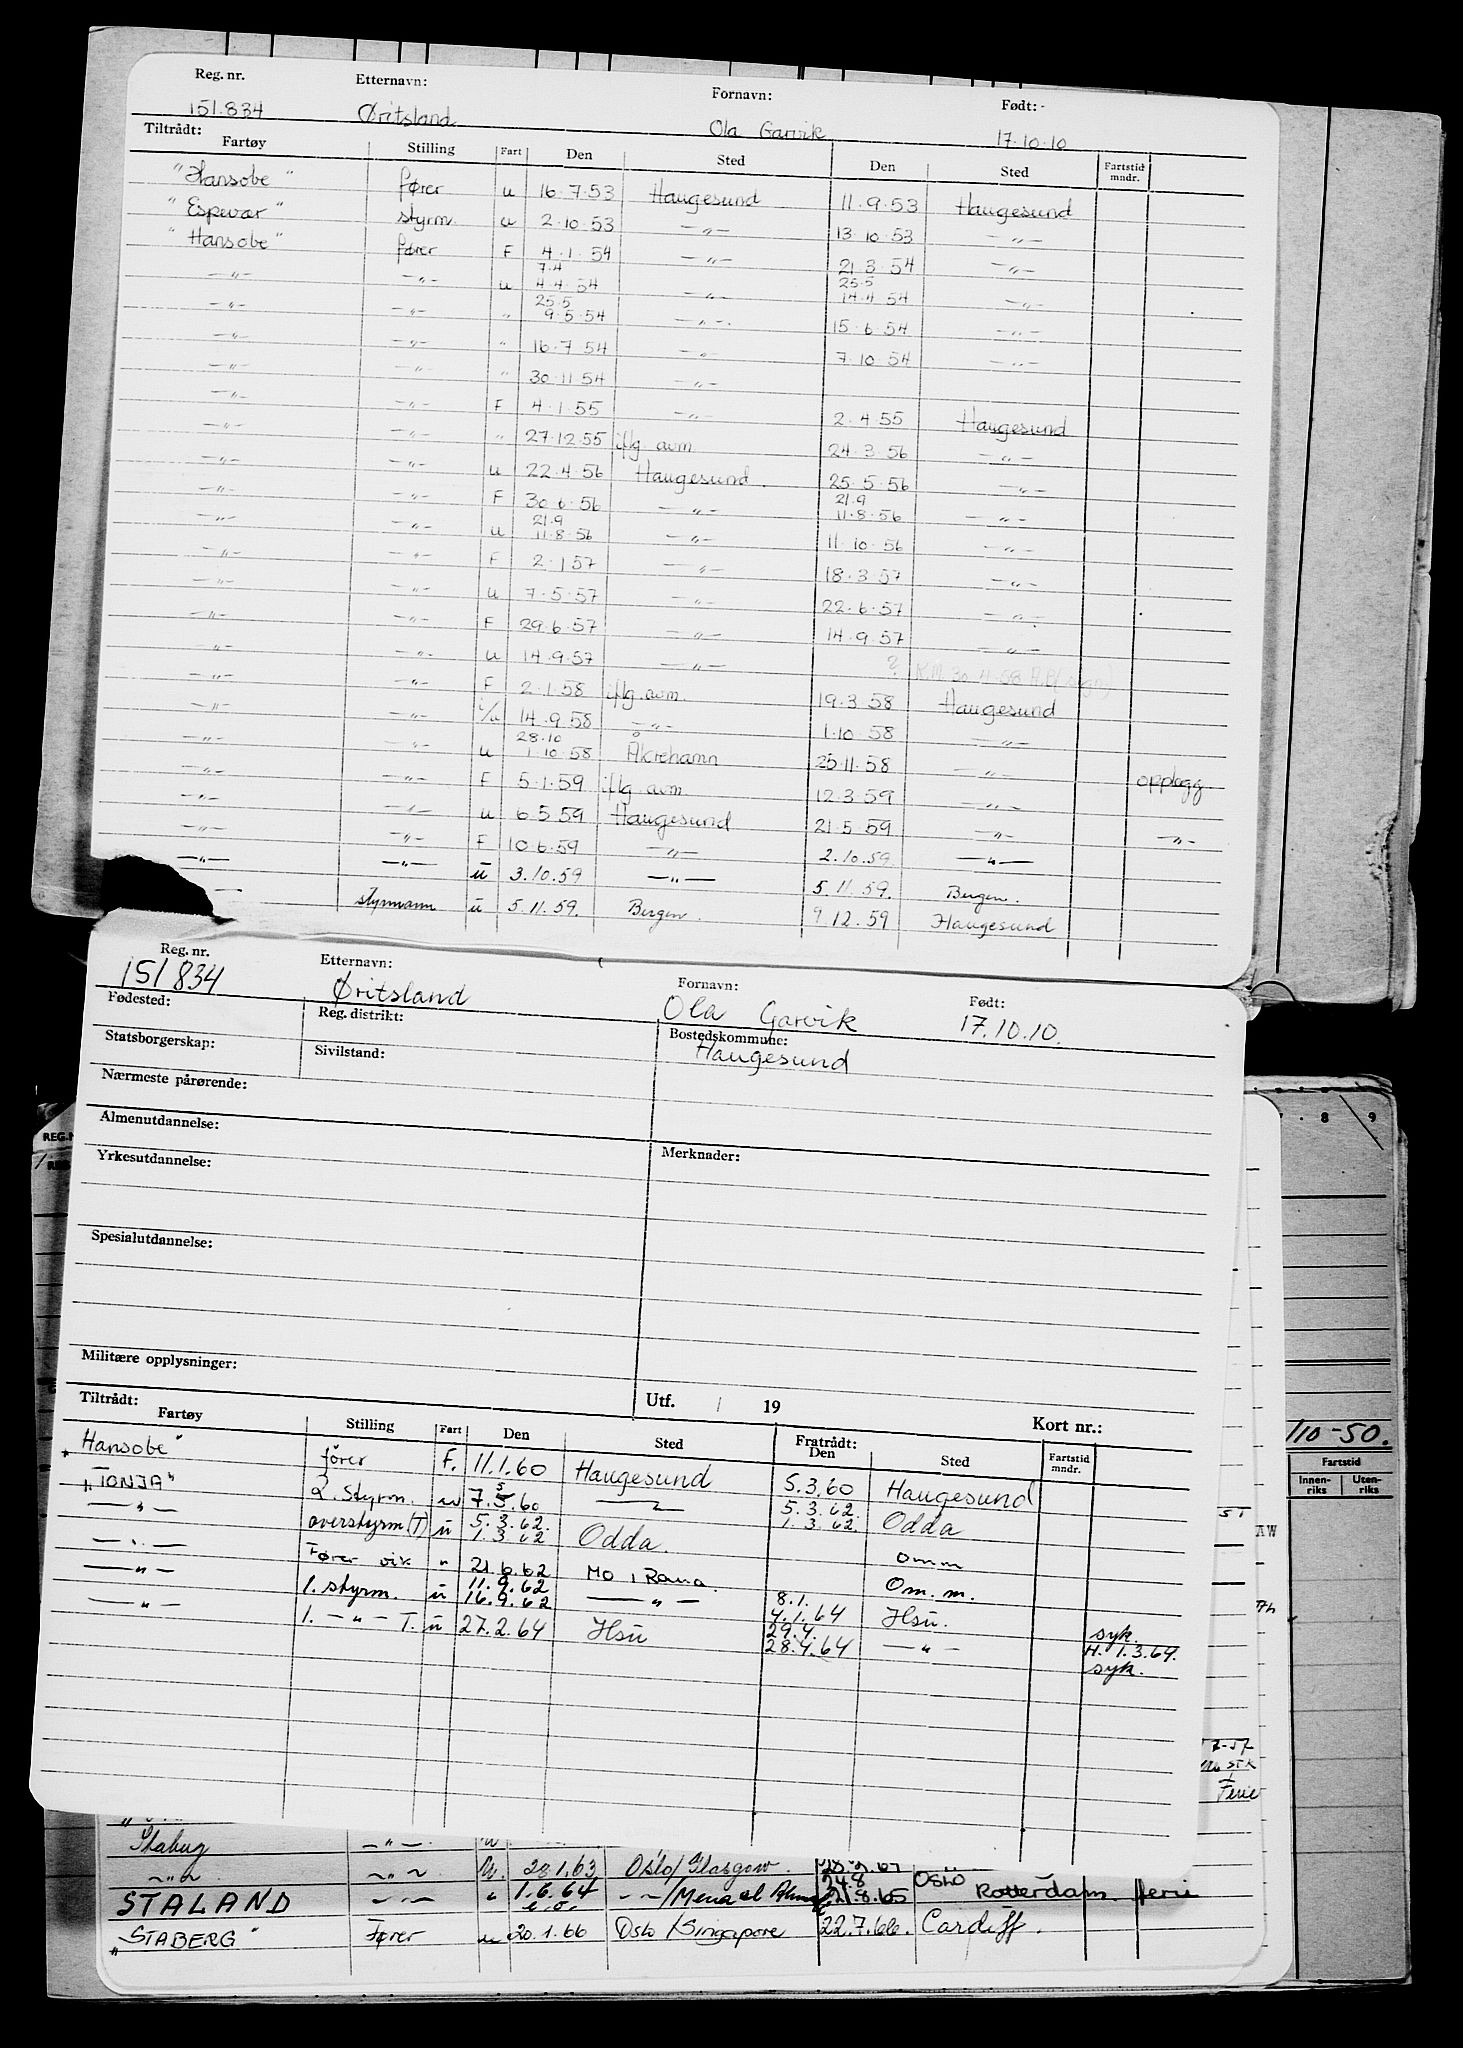 Reg. nr. Etternavn: Fornavn: Født:
151.834 Øritsland Ola Garvik 17.10.10
Tiltrådt:
Fartøy Stilling Fart Den Sted Den Sted Fartstid mndr.
"Hansobe" fører u 16.7.53 Haugesund 11.9.53 Haugesund
"Espevær" styrm u 2.10.53 —"— 13.10.53 —"—
"Hansobe" fører F 4.1.54 —"— 21.3.54 —"—
7.4 25.5
—"— —"— u 4.4.54 —"— 14.4.54 —"—
25.5
—"— —"— " 9.5.54 —"— 15.6.54 —"—
—"— —"— " 16.7.54 —"— 7.10.54 —"—
—"— —"— " 30.11.54 —"—
—"— —"— F 4.1.55 —"— 2.4.55 Haugesund
—"— —"— " 27.12.55 iflg. avm 24.3.56 —"—
—"— —"— u 22.4.56 Haugesund. 25.5.56 —"—
21.9
—"— —"— F 30.6.56 —"— 11.8.56 —"—
21.9
—"— —"— u 11.8.56 —"— 11.10.56 —"—
—"— —"— F 2.1.57 —"— 18.3.57 —"—
—"— —"— u 7.5.57 —"— 22.6.57 —"—
—"— —"— F 29.6.57 —"— 14.9.57 —"—
—"— —"— u 14.9.57 —"— ?
—"— —"— F 2.1.58 iflg. avm. 19.3.58 Haugesund
—"— —"— i/u 14.9.58 —"— 1.10.58 —"—
28.10
—"— —"— u 1.10.58 Åkrehamn 25.11.58 —"— opplagg.
—"— —"— F 5.1.59 iflg. avm. 12.3.59 —"—
—"— —"— u 6.5.59 Haugesund 21.5.59 —"— —"—
—"— —"— F 10.6.59 —"— 2.10.59. —"—
—"— —"— u 3.10.59 —"— 5.11.59. Bergen.
— styrmann u 5.11.59. Bergen. 9.12.59 Haugesund
Reg. nr. Etternavn: Fornavn: Født:
151834 Øritsland Ola Garvik 17.10.10.
Fødested: Reg. distrikt: Bostedskommune:
Haugesund
Statsborgerskap: Sivilstand:
Nærmeste pårørende:
Almenutdannelse:
Yrkesutdannelse: Merknader:
Spesialutdannelse:
Militære opplysninger:
Utf. / 19 Kort nr.:
Tiltrådt: Fratrådt:
Fartøy Stilling Fart Den Sted Den Sted Fartstid mndr.
"Hansobe" fører F. 11.1.60 Haugesund 5.3.60 Haugesund
5 5.3.62.
"TONJA" 2. styrm. u 7.5.60 —"— 1.3.62. Odda
5.3.62.
—"— overstyrm (T) u 1.3.62 Odda. omm
—"— Fører vik " 21.6.62 Mo i Rana. Om.m.
11.9.62 8.1.
—"— 1. styrm. u 16.9.62 —"— 4.1.64 Hsu. syk.
29.4. H. 1.3.64.
—"— 1. —"— T. u 27.2.64 Hsu 28.4.64 —"— syk.
REG.N
7 8 9
/10-50.
Fartstid
Innenriks Utenriks
Ferie
—"— —"— u. 28.1.63 Oslo/Glasgow.
24.8 Oslo
STALAND —"— " 1.6.64 —"—/Mena el 21.8.65 Rotterdam. ferie
"STABERG" Fører u 20.1.66 Oslo/Singapore 22.7.66. Cardiff.